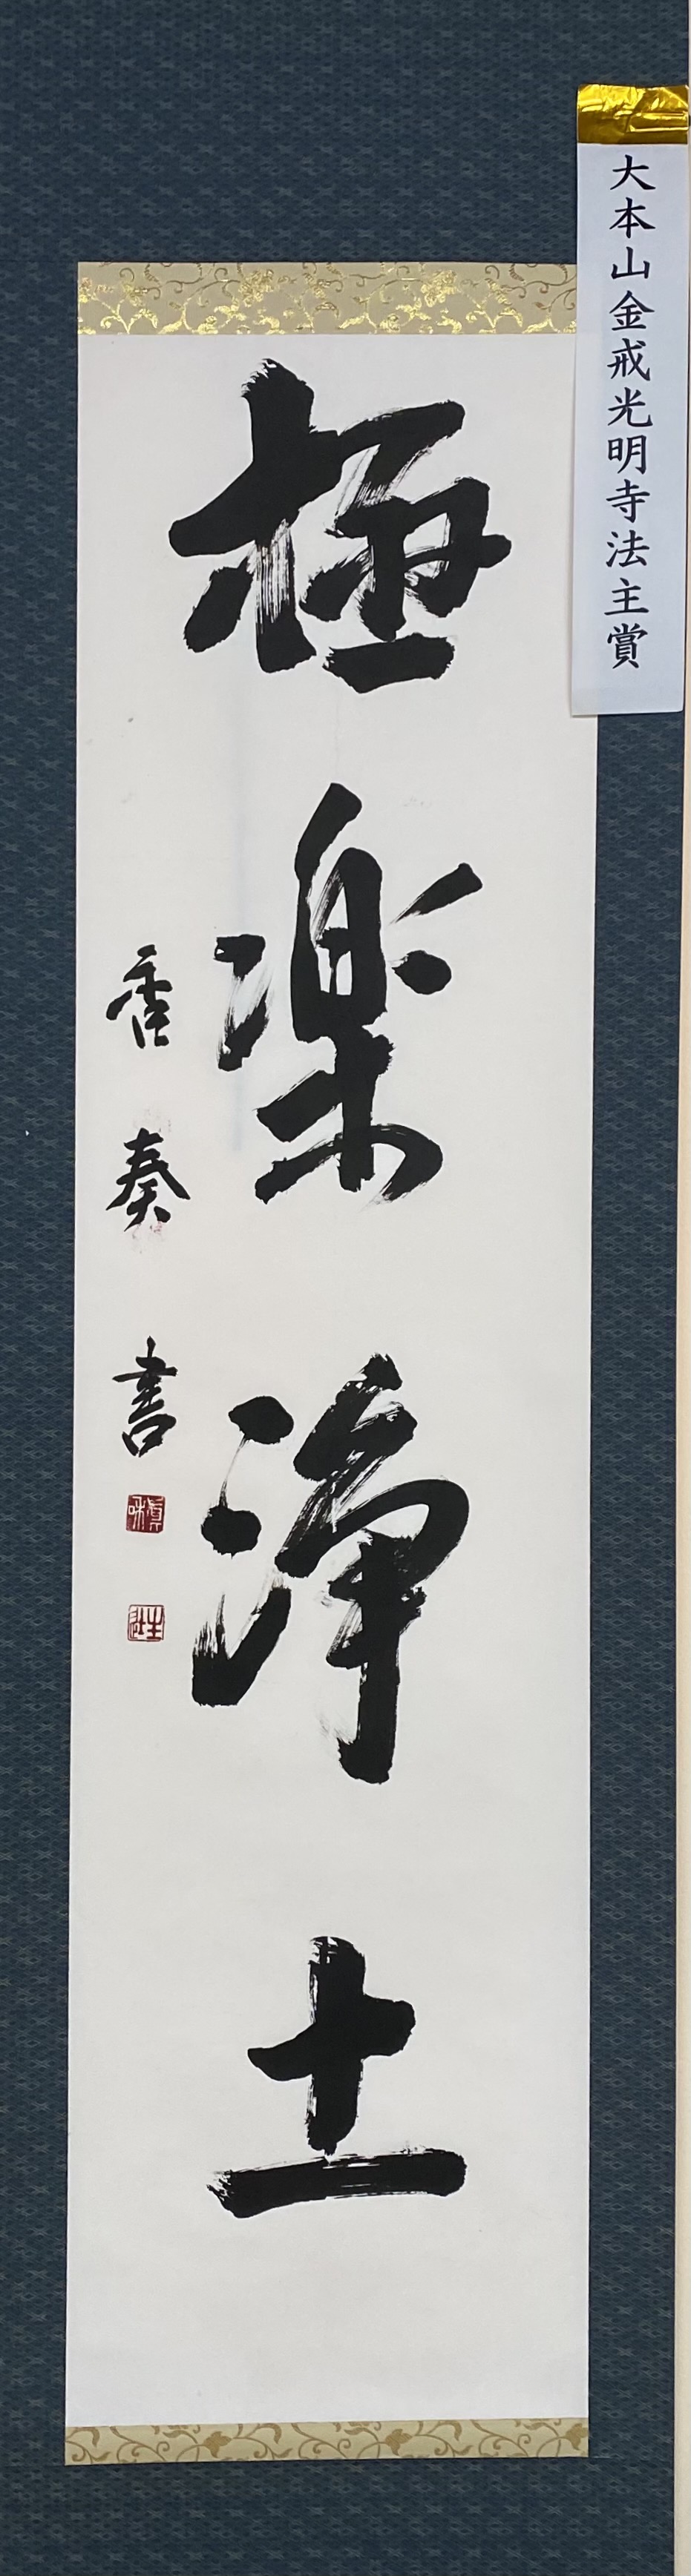 大本山金戒光明寺法主賞
極楽浄土
香奏書